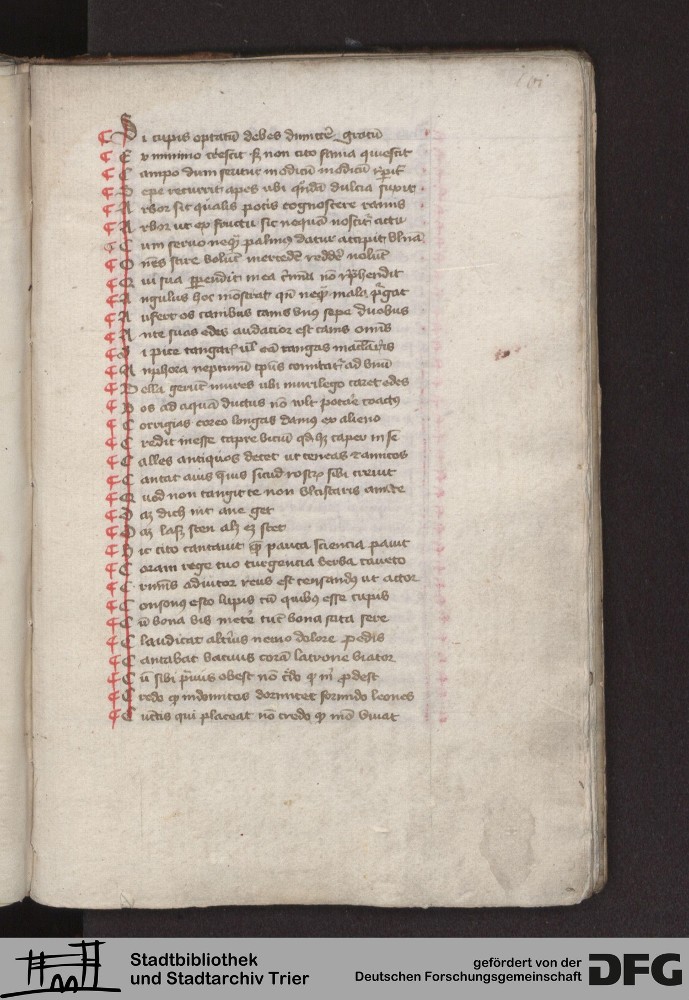 Si cupis optatū debes dimitte᷑ gratū
Ex minimo crescit sʒ non cito fama quiescit
Campo dum seritur modicū modicū
Sepe recurrit apes ubi quedā dulcia suxit
Arbor sit qualis potis cognoscere ramis
Arbor ut ex fructu sic nequā noscit᷑ actu
Cum servo neqʒ palmus datur accipit ulnā
Omēs scire volūt mercedē redde᷑ nolūt
Qui sua ꝑpendit mea c᷑mīa nō rephendit
Angulus hoc mōstrat qn̄ neqʒ mala ꝑgat
Aufert os canibus canis vnus sepe duobus
Ante suas edes audacior est canis om̄is
Si pice tangat᷑ ul̄ eā tangas macla᷑ris
Anphora neptunū tp̄us comitat᷑ ad vnū
Bella gerūt mures ubi murilego caret edes
Bos ad aquā ductus nō vult pota᷑e coactus
Corrigias coreo longas damus ex alieno
Credit inesse capre viciū qd hʒ caper in se
Calles antiquos decet ut teneas ⁊ amicos
Cantat auis quis sicud rostrū sibi crevit
Quod non tangit te non ulciscaris amice
Daʒ dich nit ane get
Daʒ lasʒ sten alʒ eʒ stet
Hic cito cantauit quē pauca sciencia pauit
Coram rege tuo turgencia verba caueto
C᷑minis adiutor reus est censandus ut actor
Consonus esto lupis cū quibus esse cupis
Cū bona vis mete᷑ tūc bona scita sere
Claudicat alt᷑ius nemo dolore pedis
Cantabat vacuus corā latrone viator
Cū sibi p᷑uus obest nō c᷑do qʒ m̄ prodest
Credo qʒ indomitos dormitet formido leones
Cunctis qui placeat nō credo qʒ mō viuat
Stadtbibliothek
und Stadtarchiv Trier
gefördert von der
Deutschen Forschungsgemeinschaft
DFG